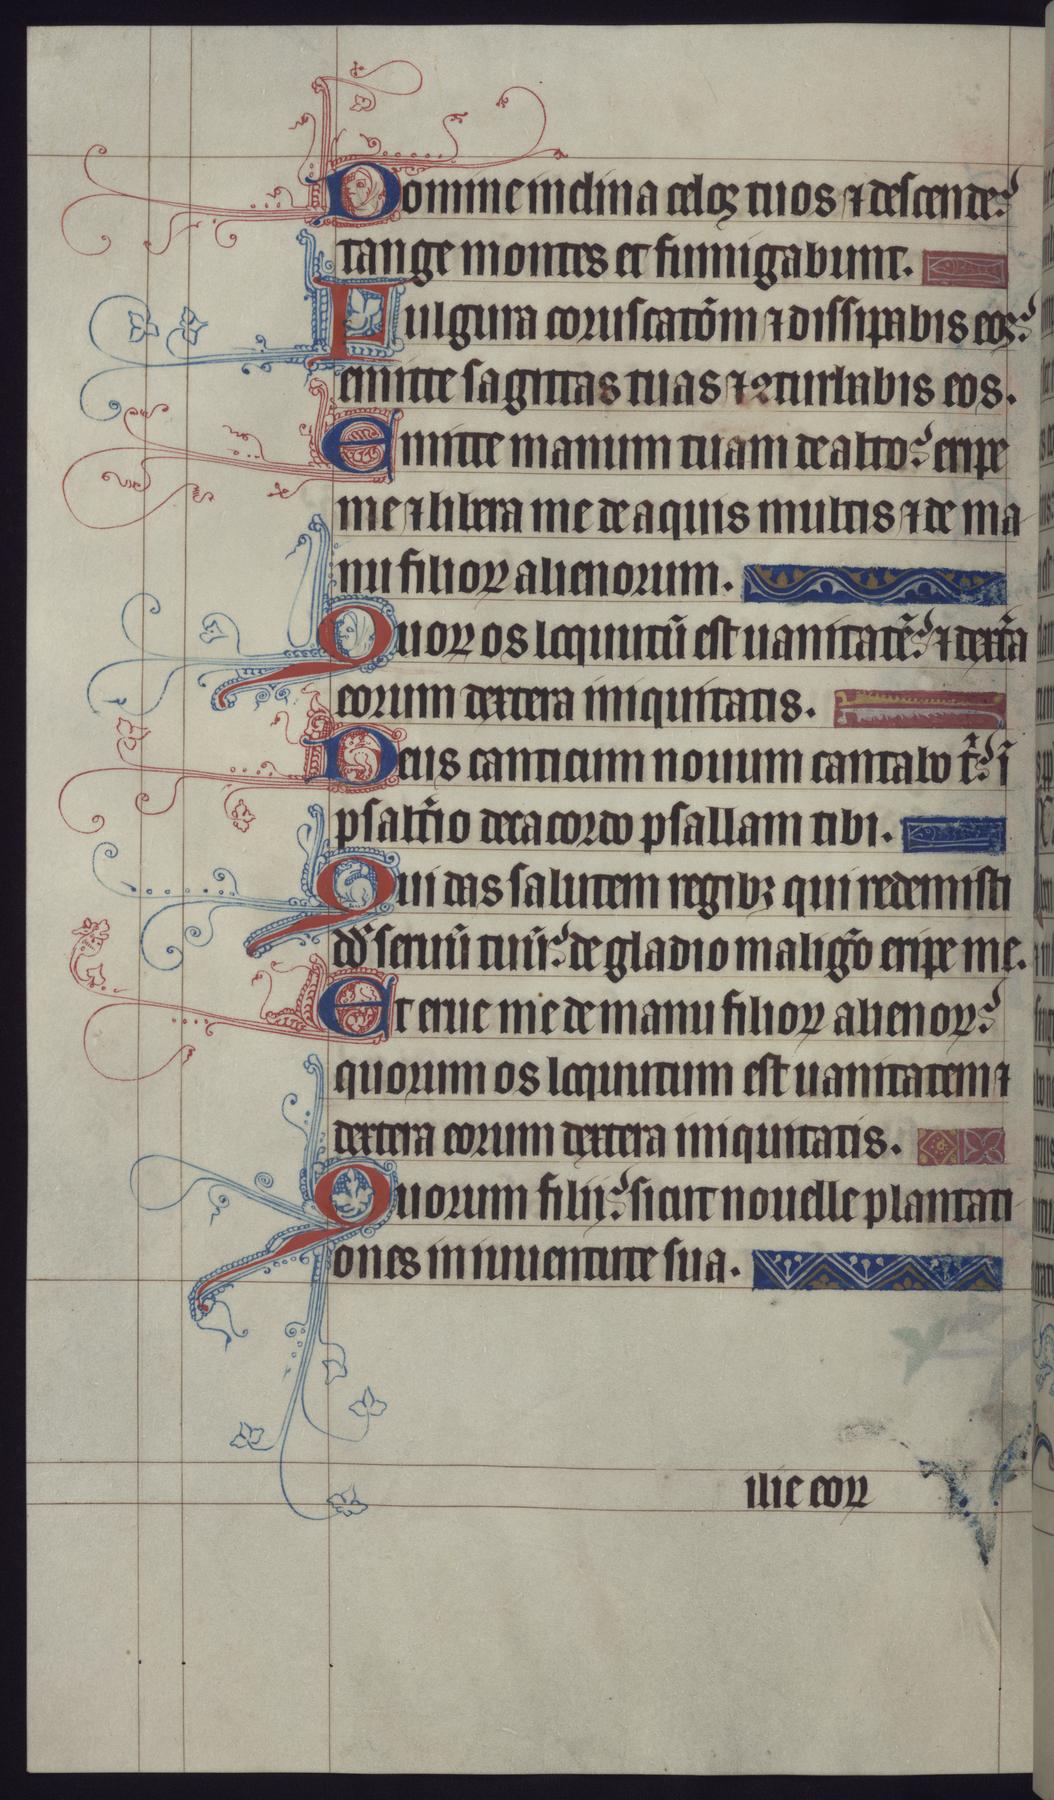 Domine inclina celoꝝ tuos ⁊ descende:
tange montes et fumigabunt.
Fulgura coruscatōm ⁊ dissipabis eos:
emitte sagittas tuas ⁊ ꝯturbabis eos.
Emitte manum tuam de alto: eripe
me ⁊ libera me de aquis multis ⁊ de ma
nu filioꝝ alienorum.
Quoꝝ os locutū est uanitatē: ⁊ dext̃a
eorum dextera iniquitatis.
Deus canticum nouum cantabo t̄: ī
psalt̃io decacordo psallam tibi.
Qui das salutem regibꝫ qui redemisti
dd̄ seruū tuū: de gladio malig̃o eripe me.
Et erue me de manu filioꝝ alienoꝝ:
quorum os locutum est uanitatem ⁊
dextera eorum dextera iniquitatis.
Quorum filii: sicut nouelle plantati
ones in iuuentute sua.
ilie eoꝝ